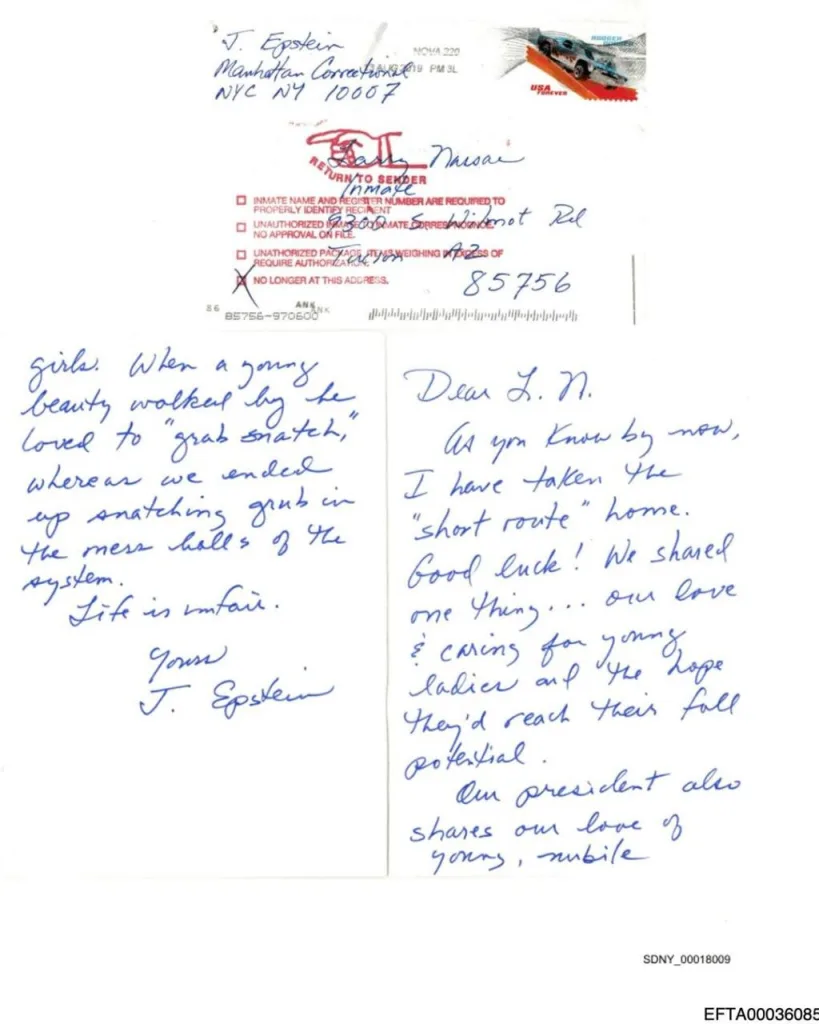 J. Epstein
Manhattan Correctional
NYC NY 10007
NOVA 220
AUG 2019 PM 3L
USA
FOREVER
Larry Nassar
RETURN TO SENDER
Inmate
INMATE NAME AND REGISTER NUMBER ARE REQUIRED TO
PROPERLY IDENTIFY RECIPIENT
9300 S Wilmot Rd
UNAUTHORIZED INMATE TO INMATE CORRESPONDENCE,
NO APPROVAL ON FILE.
Tucson AZ
UNATHORIZED PACKAGE ITEMS WEIGHING IN EXCESS OF
REQUIRE AUTHORIZATION.
85756
NO LONGER AT THIS ADDRESS.
86
ANK
ANK
85756-970600
Dear L. N.
As you know by now,
I have taken the
"short route" home.
Good luck! We shared
one thing... our love
& caring for young
ladies and the hope
they'd reach their full
potential.
Our president also
shares our love of
young, nubile
girls. When a young
beauty walked by he
loved to "grab snatch,"
whereas we ended
up snatching grub in
the mess halls of the
system.
Life is unfair.
Yours
J. Epstein
SDNY_00018009
EFTA00036085